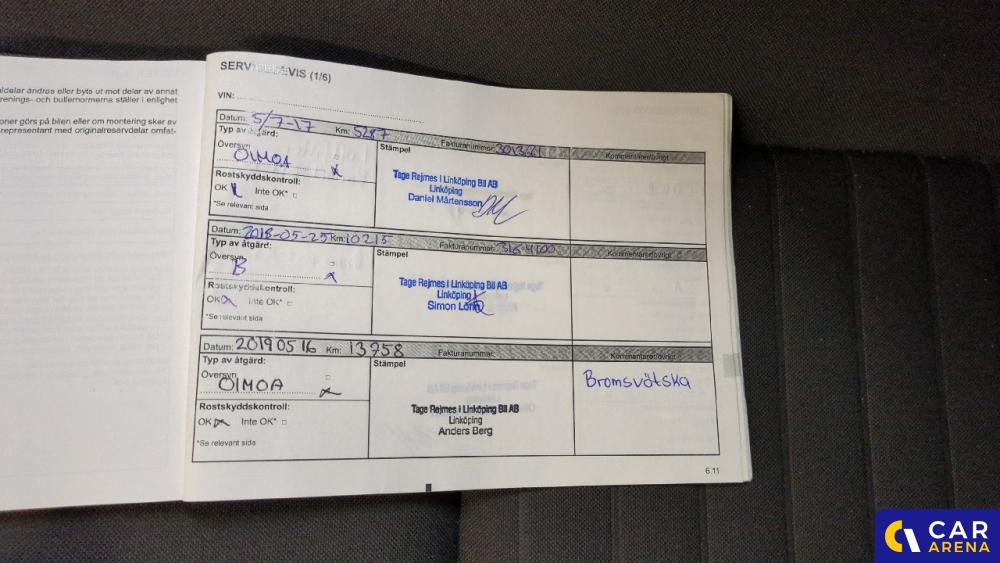 aldelar ändras eller byts ut mot delar av annat
renings- och bullernormerna ställer i enlighet
oner görs på bilen eller om montering sker av
representant med originalreservdelar omfat-
(1/6)
VIN:
Datum: 5/7-17 Km: 5287 Fakturanummer: Kommentarer/övrigt
Typ av åtgärd: Stämpel
Översyn
OIMOA x
Rostskyddskontroll:
OK Inte OK*
*Se relevant sida
Tage Rejmes i Linköping Bil AB
Linköping
Daniel Mårtensson
Datum: 2018-05-25 Km: 10215 Fakturanummer: 3164100 Kommentarer/övrigt
Typ av åtgärd: Stämpel
Översyn
B x
Rostskyddskontroll:
OK x Inte OK*
*Se relevant sida
Tage Rejmes i Linköping Bil AB
Linköping
Simon
Datum: 20190516 Km: 13758 Fakturanummer: Kommentarer/övrigt
Typ av åtgärd: Stämpel
Översyn
OIMOA x
Rostskyddskontroll:
OK x Inte OK*
*Se relevant sida
Tage Rejmes i Linköping Bil AB
Linköping
Anders Berg
Bromsvätska
6.11
CAR
ARENA